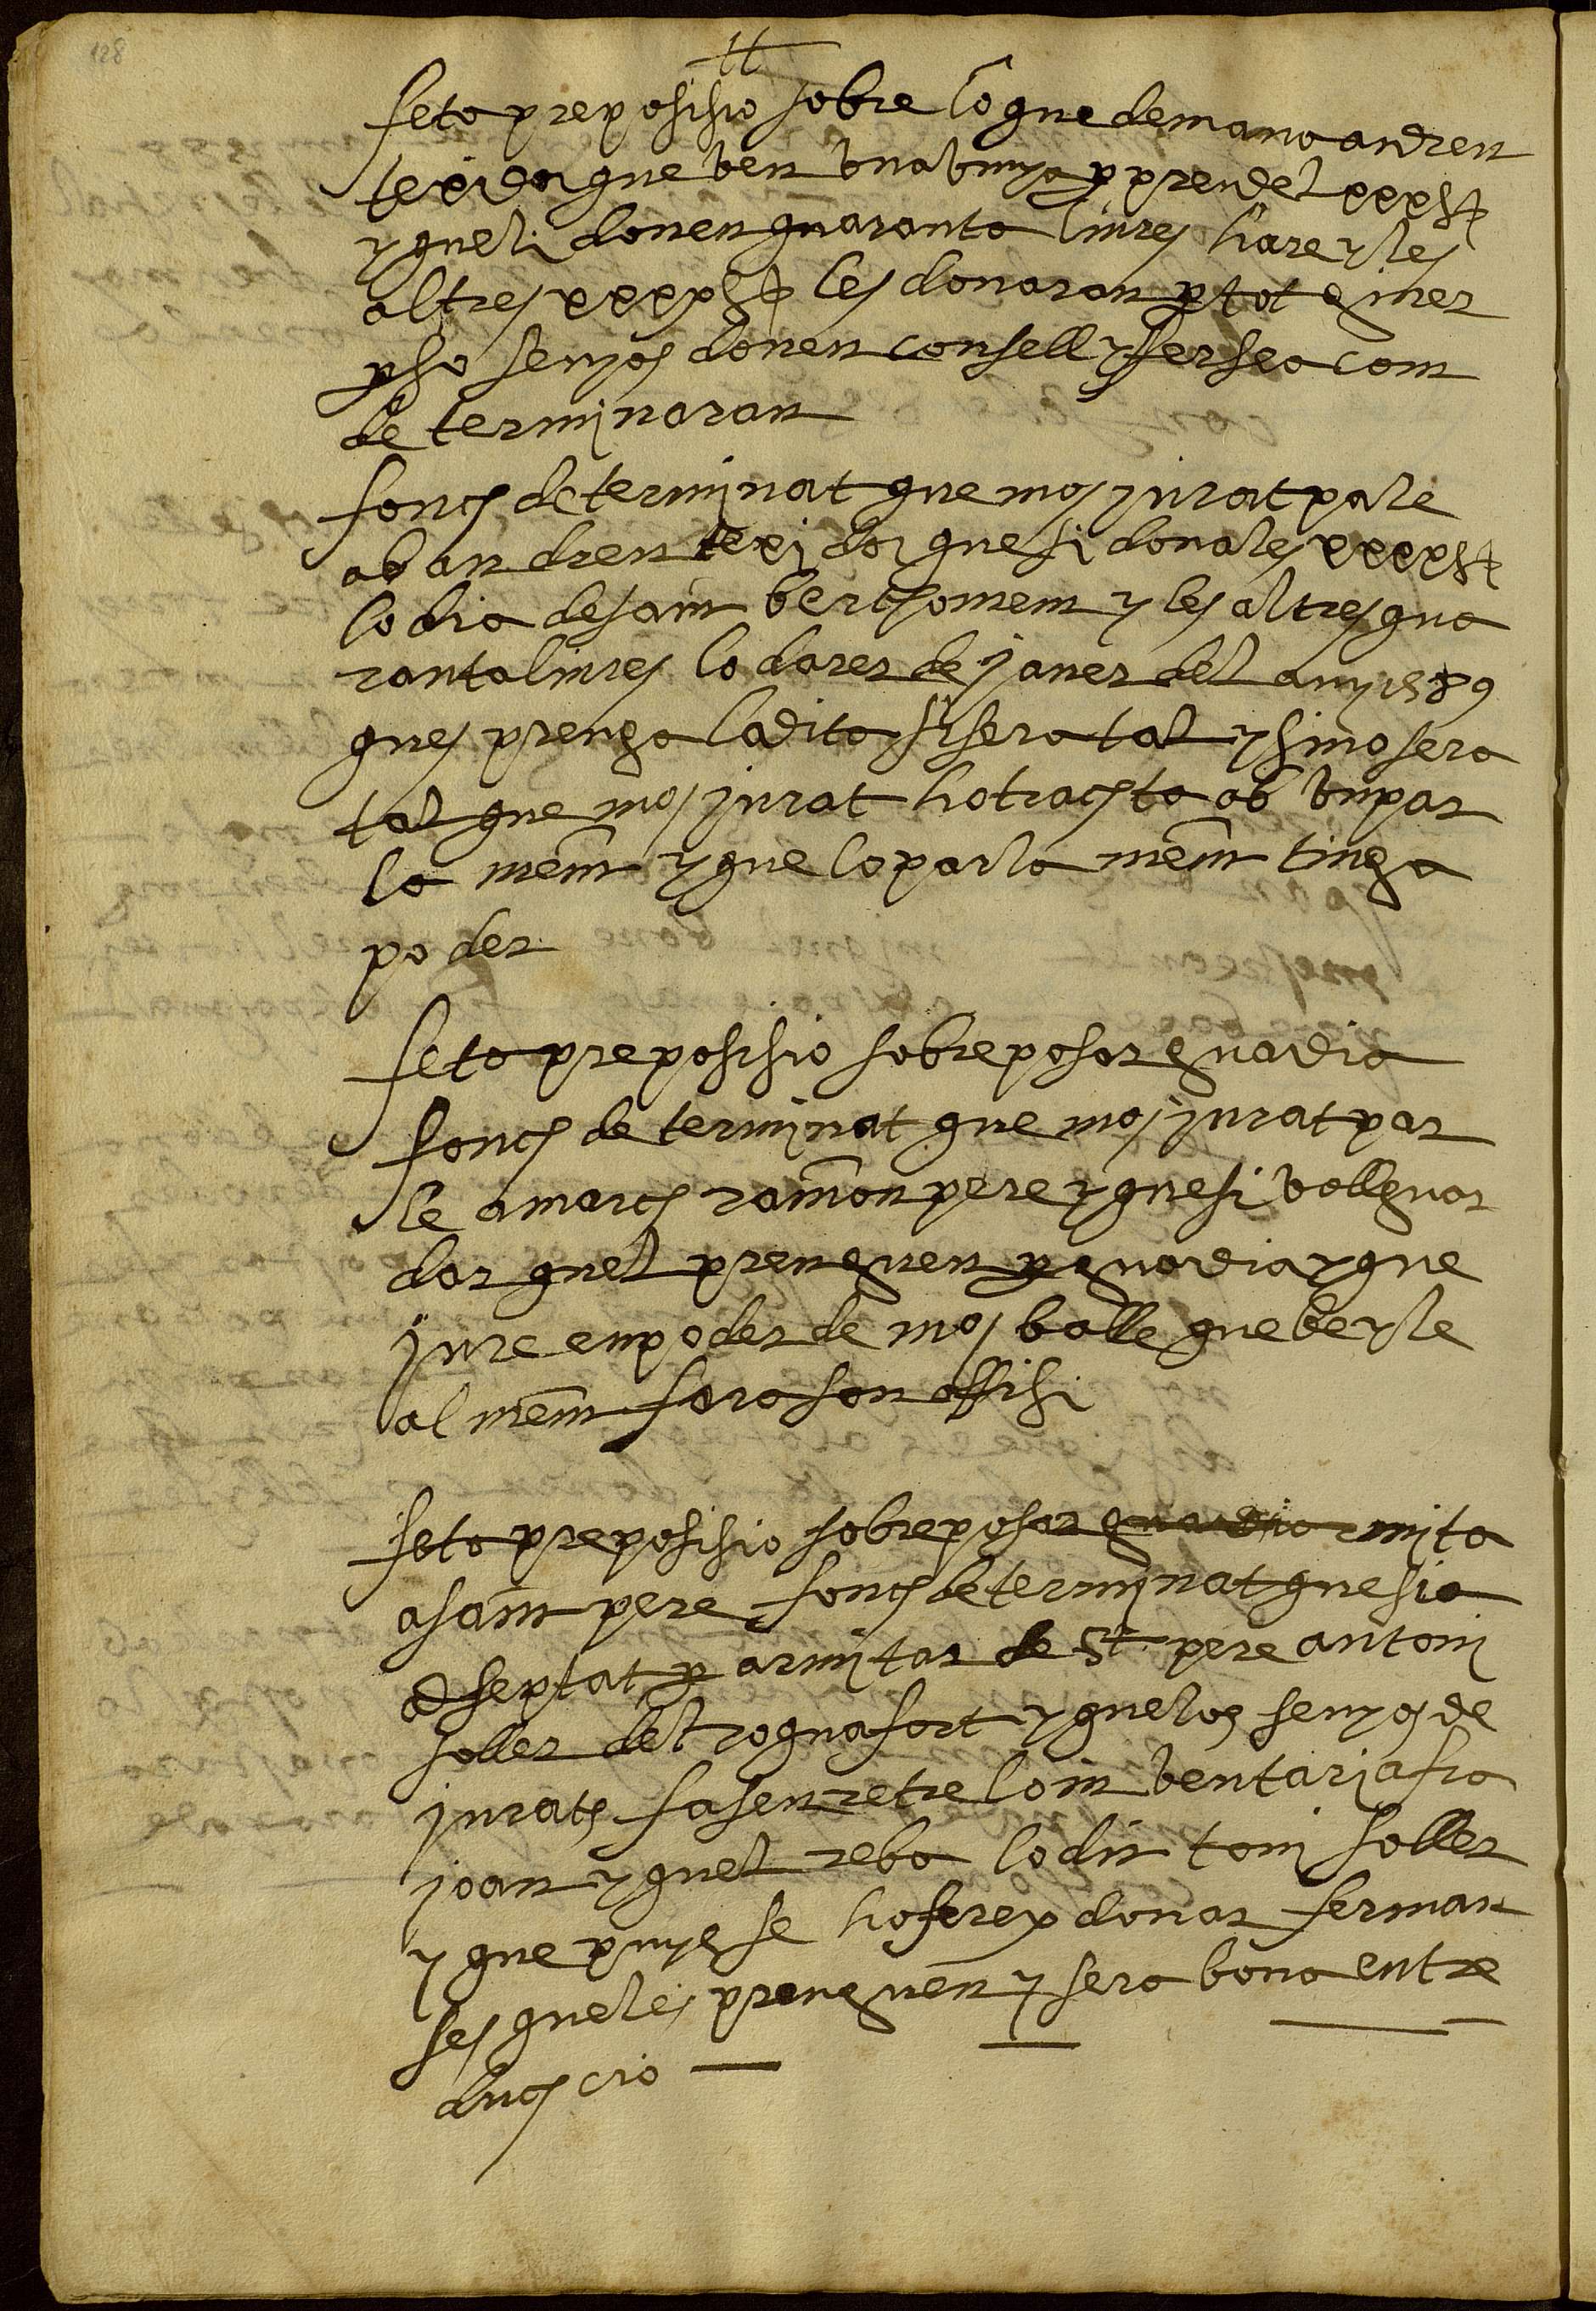 128
tt
feta preposisio sobre lo que demana andreu
texidor que ven una vinya per preu de L xxxxS tt
y que li donen quaranta liures hara y les
altres xxxx S tt les donaran per tot giner
per so senyos donen consell y ferse a com
determinaran
fonch determinat que mos jurat parle
ab andreu texidor que si dona les xxxx S tt
lo dia de sant berthomeu y les altres qua
ranta liures lo darer de janer del any 1589
ques prenga la dita si sera tal y si no sera
tal que mos jurat ho tracta ab un par
lament y que lo parlament tinga
poder
feta preposisio sobre posar guardia
fonch determinat que mos jurat par
le a march ramon pere y que si voll guar
dar quel prenguen per guardia y que
jure en poder de mos balle que be y le
alment fara son offisi
feta preposisio sobre posar guardia rmita
a sant pere fonch determinat que sia
aseptat per armitar de St pere antoni
soller del roquafort y que los senyos de
jurats fasen retre lo inventari a fra
joan y quel reba lo dit toni soller
y que puys se hoferex donar ferman
ses que les prenguen y sera bona entre
duccio